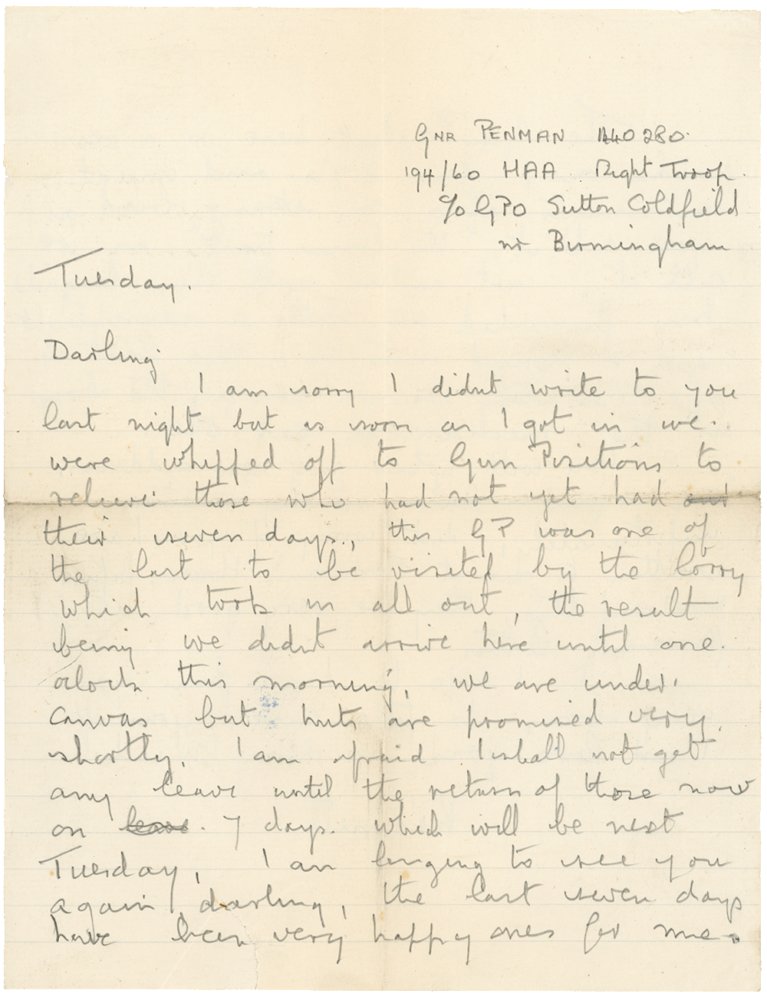 GNR PENMAN 1440280.
194/60 HAA Right Troop.
c/o GPO Sutton Coldfield
nr Birmingham
Tuesday.
Darling
I am sorry I didnt write to you
last night but as soon as I got in we
were whipped off to Gun Positions to
relieve those who had not yet had
their seven days., this GP was one of
the last to be visited by the lorry
which took us all out, the result
being we didnt arrive here until one
oclock this morning, we are under
canvas but huts are promised very
shortly. I am afraid I shall not get
any leave until the return of those now
on leave. 7 days. which will be next
Tuesday, I am longing to see you
again darling, the last seven days
have been very happy ones for me.